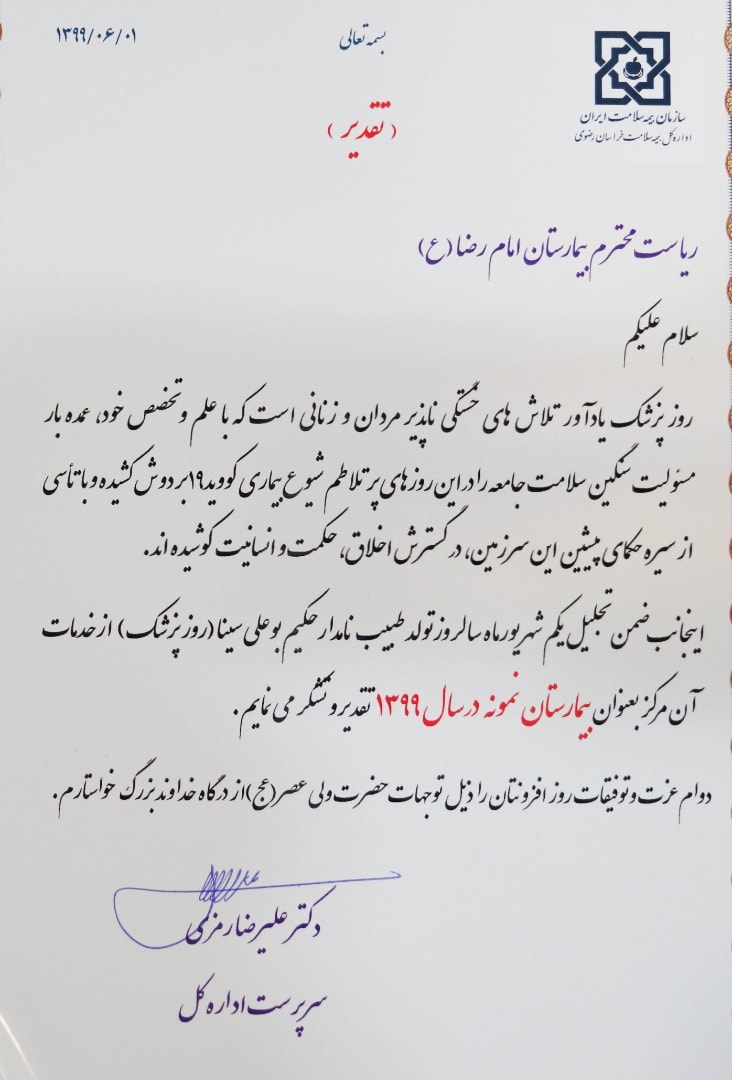 بسمه تعالی
۱۳۹۹/۰۶/۰۱
سازمان بیمه سلامت ایران
اداره کل بیمه سلامت خراسان رضوی
( تقدیر )
ریاست محترم بیمارستان امام رضا (ع)
سلام علیکم
روز پزشک یادآور تلاش های خستگی ناپذیر مردان و زنانی است که با علم و تخصص خود، عمده بار
مسئولیت سنگین سلامت جامعه را در این روزهای پر تلاطم شیوع بیماری کووید۱۹ بر دوش کشیده و با تأسی
از سیره حکمای پیشین این سرزمین، در گسترش اخلاق، حکمت و انسانیت کوشیده اند.
اینجانب ضمن تجلیل یکم شهریور ماه سالروز تولد طبیب نامدار حکیم بوعلی سینا (روز پزشک) از خدمات
آن مرکز بعنوان بیمارستان نمونه در سال ۱۳۹۹ تقدیر و تشکر می نمایم.
دوام عزت و توفیقات روز افزونتان را ذیل توجهات حضرت ولی عصر(عج) از درگاه خداوند بزرگ خواستارم.
دکتر علیرضا
سرپرست اداره کل